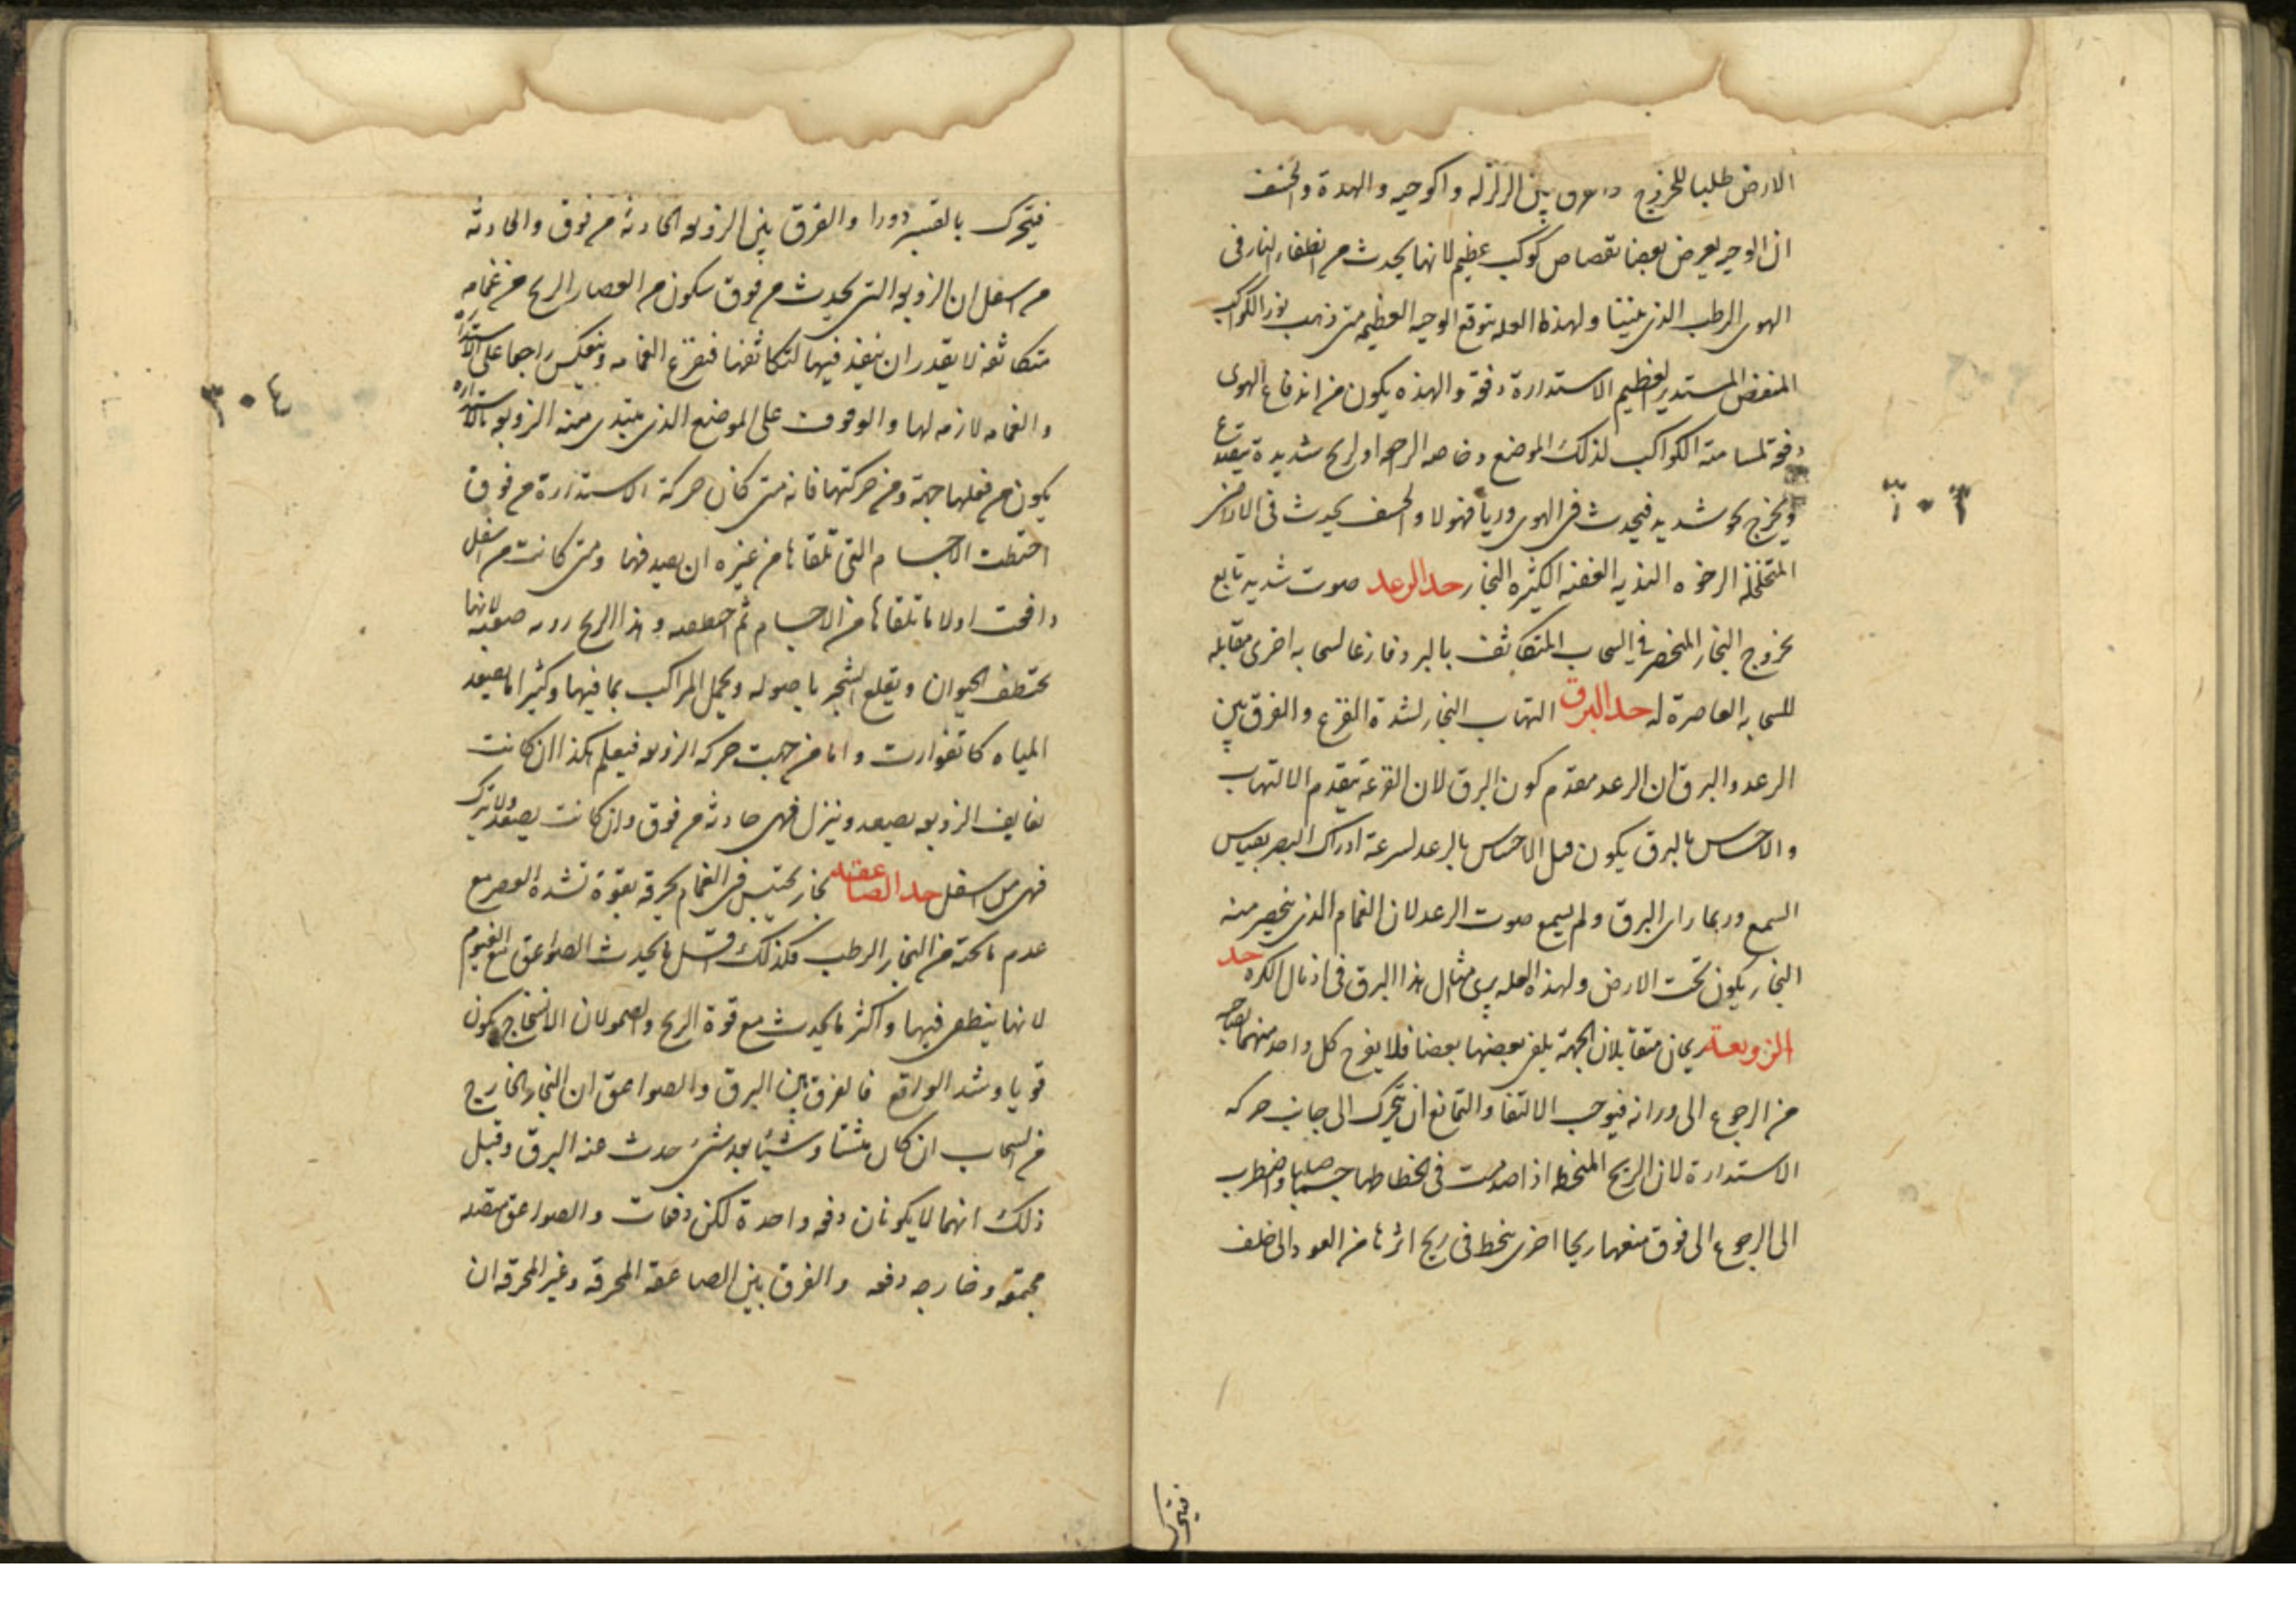 الارض طلبا للخروج والفرق بين الزلزله والوجيه والهدة والخسف
ان الوجيه يعرض بعضا نقصاص كوكب عظيم لانها يحدث من انطفاء النار فى
الهوى الرطب الذى ولهذه العله يتوقع الوجيه العظيمه متى ذهب نور الكواكب
المنقض المستدير لعظيم الاستدارة دفعة والهذه يكون من اندفاع الهوى
دفعة لمسامتة الكواكب لذلك الموضع وخاصه او لريح شديدة
ويخرج شديد فيحدث فى الهوى دويا مهولا والخسف يحدث فى الاراضى
المتخلخلة الرخوه النديه العفنه الكثيره البخار حد الرعد صوت شديد تابع
بخروج البخار المنحصر فى السحاب المتكاثف بالبرد قارعا لسحابه اخرى مقابله
للسحابه العاصرة له حد البرق التهاب البخار لشدة القرع والفرق بين
الرعد والبرق ان الرعد مقدم كون البرق لان القرعة يتقدم الالتهاب
والاحساس بالبرق يكون قبل الاحساس بالرعد لسرعة ادراك البصر بقياس
السمع وربما راى البرق ولم يسمع صوت الرعد لان الغمام الذى ينحصر منه
البخار يكون تحت الارض ولهذه العله يرى مثال هذا البرق فى اذيال الكره حد
الزوبعة ريحان متقابلان الجهة يلقى بعضها بعضا فلا يفرح كل واحد منهما لصاحبه
من الرجوع الى ورائه فيوجب الالتقا والتمانع ان يتحرك الى جانب حركه
الاستدارة لان الريح المنحطه اذا صدمت فى انحطاطها جسما صلبا واضطرب
الى الرجوع الى فوق منعها ريحا اخرى ينحط فى ريح اثرها من العود الى خلف
فيتحرك
٣٠٣
فيتحرك بالقسر دورا والفرق بين الزوبعه الحادثه من فوق والحادثه
من اسفل ان الزوبعه التى يحدث من فوق يتكون من انعصار الريح من غمامه
متكاثفه لا يقدر ان ينفذ فيها لتكاثفها فتقرع الغمامه وينعكس راجعا على الاستداره
والغمامه لازمه لها والوقوف على الموضع الذى يبتدى منه الزوبعه بالاستداره
يكون من فعلها جهة ومن حركتها فانه متى كان حركة الاستدارة من فوق
اختطفت الاجسام التى تلقاها من غيره ان يصدفها ومتى كانت من اسفل
دافعت اولا ما تلقاها من الاجسام ثم وهذا الريح صعبه لانها
تختطف الحيوان ويقلع الشجر باصوله ويحمل المراكب بما فيها وكثيرا ما يصعد
المياه كانفوارت واما من جهت حركه الزوبعه فيعلم هكذا ان كانت
لفايف الزوبعه يصعد وينزل فهى حادثه من فوق وان كانت يصعد ولا ينزل
فهى من اسفل حد الصاعقه بخار يحتبس فى الغمام يحرقه بقوة لشدة العصر مع
عدم ما تحته من البخار الرطب فكذلك قل ما يحدث الصواعق مع الغيوم
لانها ينطفى فيها واكثر ما يحدث مع قوة الريح والصحو لان الانشجاج يكون
قويا وشد الواقع فالفرق بين البرق والصواعق ان البخار الخارج
من السحاب ان كان مشتتا وشيئا بعد شئ حدث عنه البرق وقبل
ذلك انهما لا يكونان دفعه واحدة لكن دفعات والصواعق متصله
مجتمعه وخارجه دفعه والفرق بين الصاعقه المحرقه وغير المحرقه ان
٣٠٤